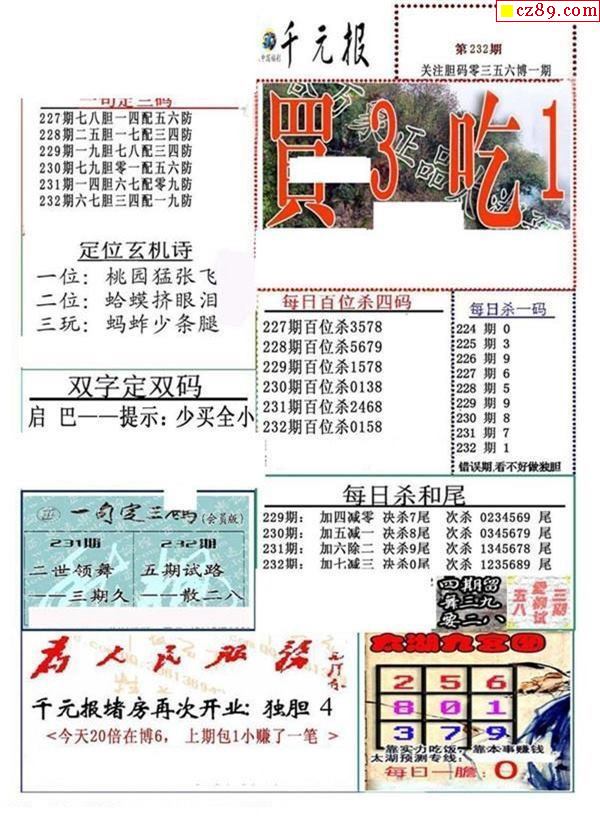 cz89.com
千元报
第232期
关注胆码零三五六博一期
一句定三码
227期七八胆一四配五六防
228期二五胆一七配三四防
229期一九胆七八配三四防
230期七九胆零一配五六防
231期一四胆六七配零九防
232期六七胆三四配一九防
買3吃1
定位玄机诗
一位：桃园猛张飞
二位：蛤蟆挤眼泪
三玩：蚂蚱少条腿
每日百位杀四码
227期百位杀3578
228期百位杀5679
229期百位杀1578
230期百位杀0138
231期百位杀2468
232期百位杀0158
每日杀一码
224 期 0
225 期 3
226 期 9
227 期 6
228 期 5
229 期 9
230 期 8
231 期 7
232 期 1
错误期,看不好做独胆
双字定双码
启 巴——提示：少买全小
每日杀和尾
229期： 加四减零 决杀7尾 次杀 0234569 尾
230期： 加五减一 决杀8尾 次杀 0345679 尾
231期： 加六除二 决杀9尾 次杀 1345678 尾
232期： 加七减三 决杀0尾 次杀 1235689 尾
一句定三码(会员版)
231期 232期
二世领舞 五期试路
——三期久 ——散二八
四期留
舞三九
零二八
三期
爱柳试
五八
为人民服务
千元报堵房再次开业: 独胆 4
<今天20倍在博6， 上期包1小赚了一笔 >
太湖九宫图
2 5 6
8 0 1
3 7 9
靠实力吃饭，靠本事赚钱
太湖预测专线:
每日一胆: 0